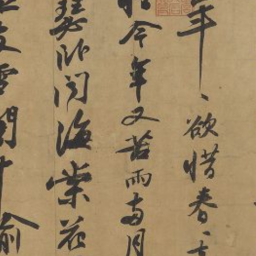 年、欲惜春、去
今年又苦雨兩月
瑟臥聞海棠花
雪闇中偷